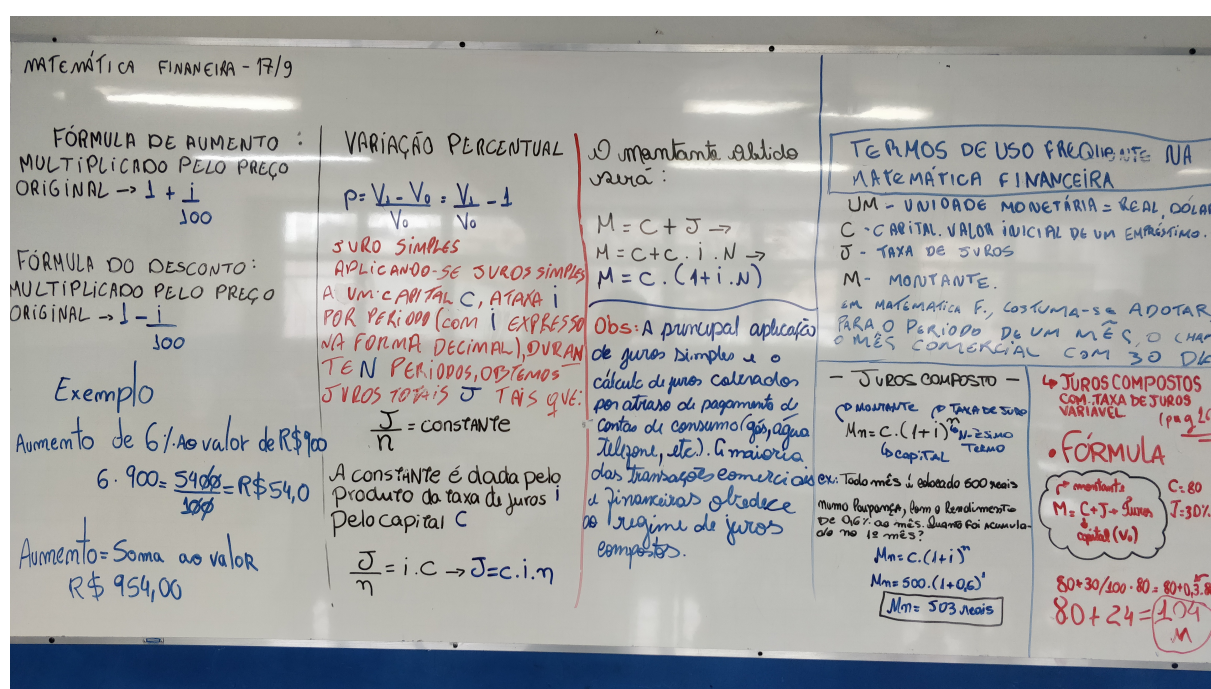 MATEMÁTICA FINANEIRA - 17/9
FÓRMULA DE AUMENTO :
MULTIPLICADO PELO PREÇO
ORIGINAL → 1 + i
100
FÓRMULA DO DESCONTO:
MULTIPLICADO PELO PREÇO
ORIGINAL → 1 - i
100
Exemplo
Aumento de 6% Ao valor de R$900
6 . 900 = 5400 = R$ 54,0
100
Aumento = Soma ao valor
R$ 954,00
VARIAÇÃO PERCENTUAL
P = V₁ - V₀ = V₁ - 1
V₀ V₀
JURO SIMPLES
APLICANDO-SE JUROS SIMPLES
A UM CAPITAL C, A TAXA i
POR PERÍODO (COM i EXPRESSO
NA FORMA DECIMAL), DURAN
TE N PERÍODOS, OBTEMOS
JUROS TOTAIS J TAIS QUE:
J = CONSTANTE
n
A CONSTANTE é dada pelo
produto da taxa de juros i
Pelo capital C
J = i . C → J = c . i . n
n
O montante obtido
será :
M = C + J →
M = C + C . i . N →
M = C . (1 + i . N)
Obs: A principal aplicação
de juros simples e o
cálculo de juros cobrados
por atraso de pagamento de
contas de consumo (gás, água
telefone, etc.). A maioria
das transações comerciais
e financeiras obedece
ao regime de juros
compostos.
TERMOS DE USO FREQUENTE NA
MATEMÁTICA FINANCEIRA
UM - UNIDADE MONETÁRIA = REAL, DÓLAR
C - CAPITAL. VALOR INICIAL DE UM EMPRÉSTIMO.
J - TAXA DE JUROS
M - MONTANTE.
EM MATEMATICA F., COSTUMA-SE ADOTAR
PARA O PERÍODO DE UM MÊS, O CHAM
O MÊS COMERCIAL COM 30 DIA
- JUROS COMPOSTO -
MONTANTE TAXA DE JURO
Mn = C . (1 + i)ⁿ N-ÉSIMO
TERMO
CAPITAL
ex: Todo mês é colocado 500 reais
numa Poupança, com o Rendimento
DE 0,6% ao mês. Quanto foi acumula-
do no 1º mês?
Mn = C . (1 + i)ⁿ
Mn = 500 . (1 + 0,6)¹
Mn = 503 reais
↳ JUROS COMPOSTOS
COM TAXA DE JUROS
VARIAVEL
(pag
• FÓRMULA
montante
M = C + J → Juros
capital (V₀)
C = 80
J = 30%
80 + 30/100 . 80 = 80 + 0,3 . 8
80 + 24 = 104
M